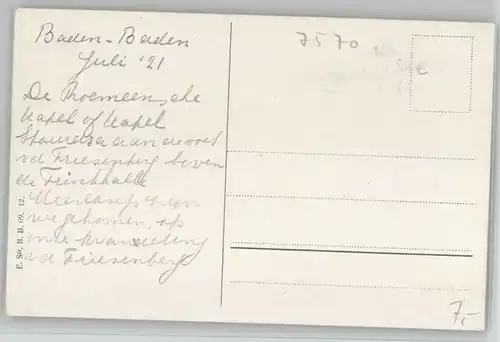 Baden-Baden
Juli '21
De Roemeensche
Kapel of Kapel
Stourdza aan de voet
v d Friesenberg boven
de Trinkhalle
langs
we gekomen, op
onze wandeling
v d Friesenberg
E. So. B. B. 09. 12.
7570
7,-